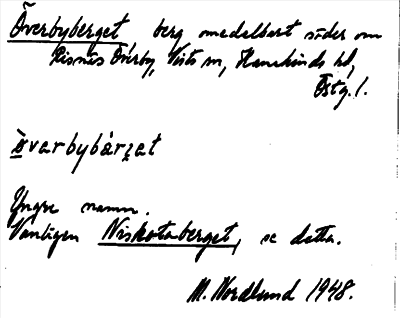 Överbyberget, berg omedelbart söder om
Risnäs Överby, Vists sn, Hanekinds hd,
Östg. l.
ö̀varbybárʐat
Yngre namn.
Vanligen Niskotaberget, se detta.
M. Nordlund 1948.